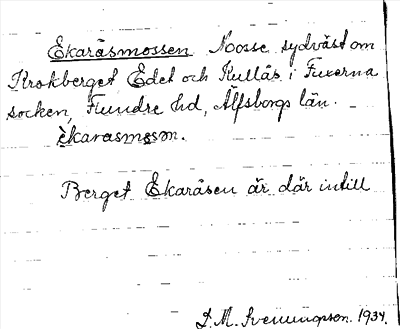 Ekaråsmossen Mosse sydväst om
Krokberget Edet och Kullås i Fuxerna
socken, Flundre hd, Älfsborgs län.
èkarasmosn.
Berget Ekaråsen är där intill
S. M. Svenningson. 1934.